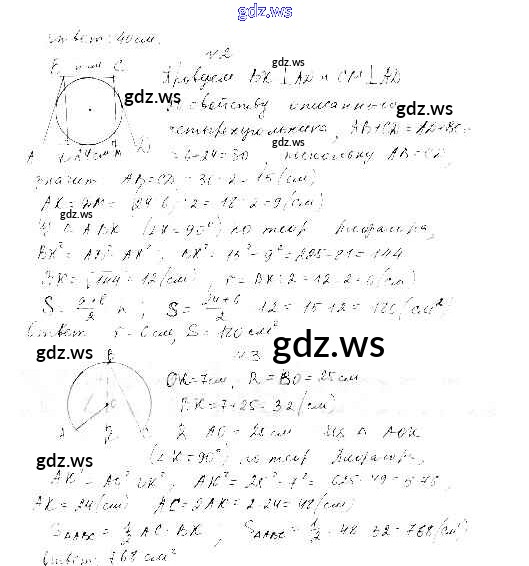 gdz.ws
Ответ: 40 см.
№2
gdz.ws
Проведем BK ⊥ AD и CM ⊥ AD
gdz.ws
По свойству описанного
gdz.ws
четырехугольника, AB+CD = AD+BC =
gdz.ws
= 6+24=30, поскольку AB=CD,
A 24 см M D
значит AB=CD = 30:2=15(см)
AK = DM = (24-6):2=18:2=9(см)
gdz.ws
gdz.ws
△ABK (∠K=90°) по теор. Пифагора,
BK² = AB² - AK², BK² = 15² - 9² = 225-81=144
BK = √144 = 12(см), r = BK:2 = 12:2=6(см)
S = (a+b)/2 · h; S = (24+6)/2 · 12 = 15·12 = 180(см²)
Ответ: r=6см, S=180см²
gdz.ws
№3
gdz.ws
B
OK=7см, R=BO=25см
BK=7+25=32(см)
AO=25см △AOK
gdz.ws
(∠K=90°) по теор. Пифагора,
gdz.ws
AK² = AO² - OK², AK² = 25² - 7² = 625-49=576
AK=24(см) AC=2AK=2·24=48(см)
gdz.ws
S△ABC = 1/2 AC·BK; S△ABC = 1/2 · 48 · 32 = 768(см²)
Ответ: 768 см²
gdz.ws